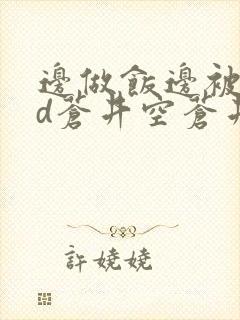 邊做飯邊被
d蒼井空蒼井
許嬈嬈